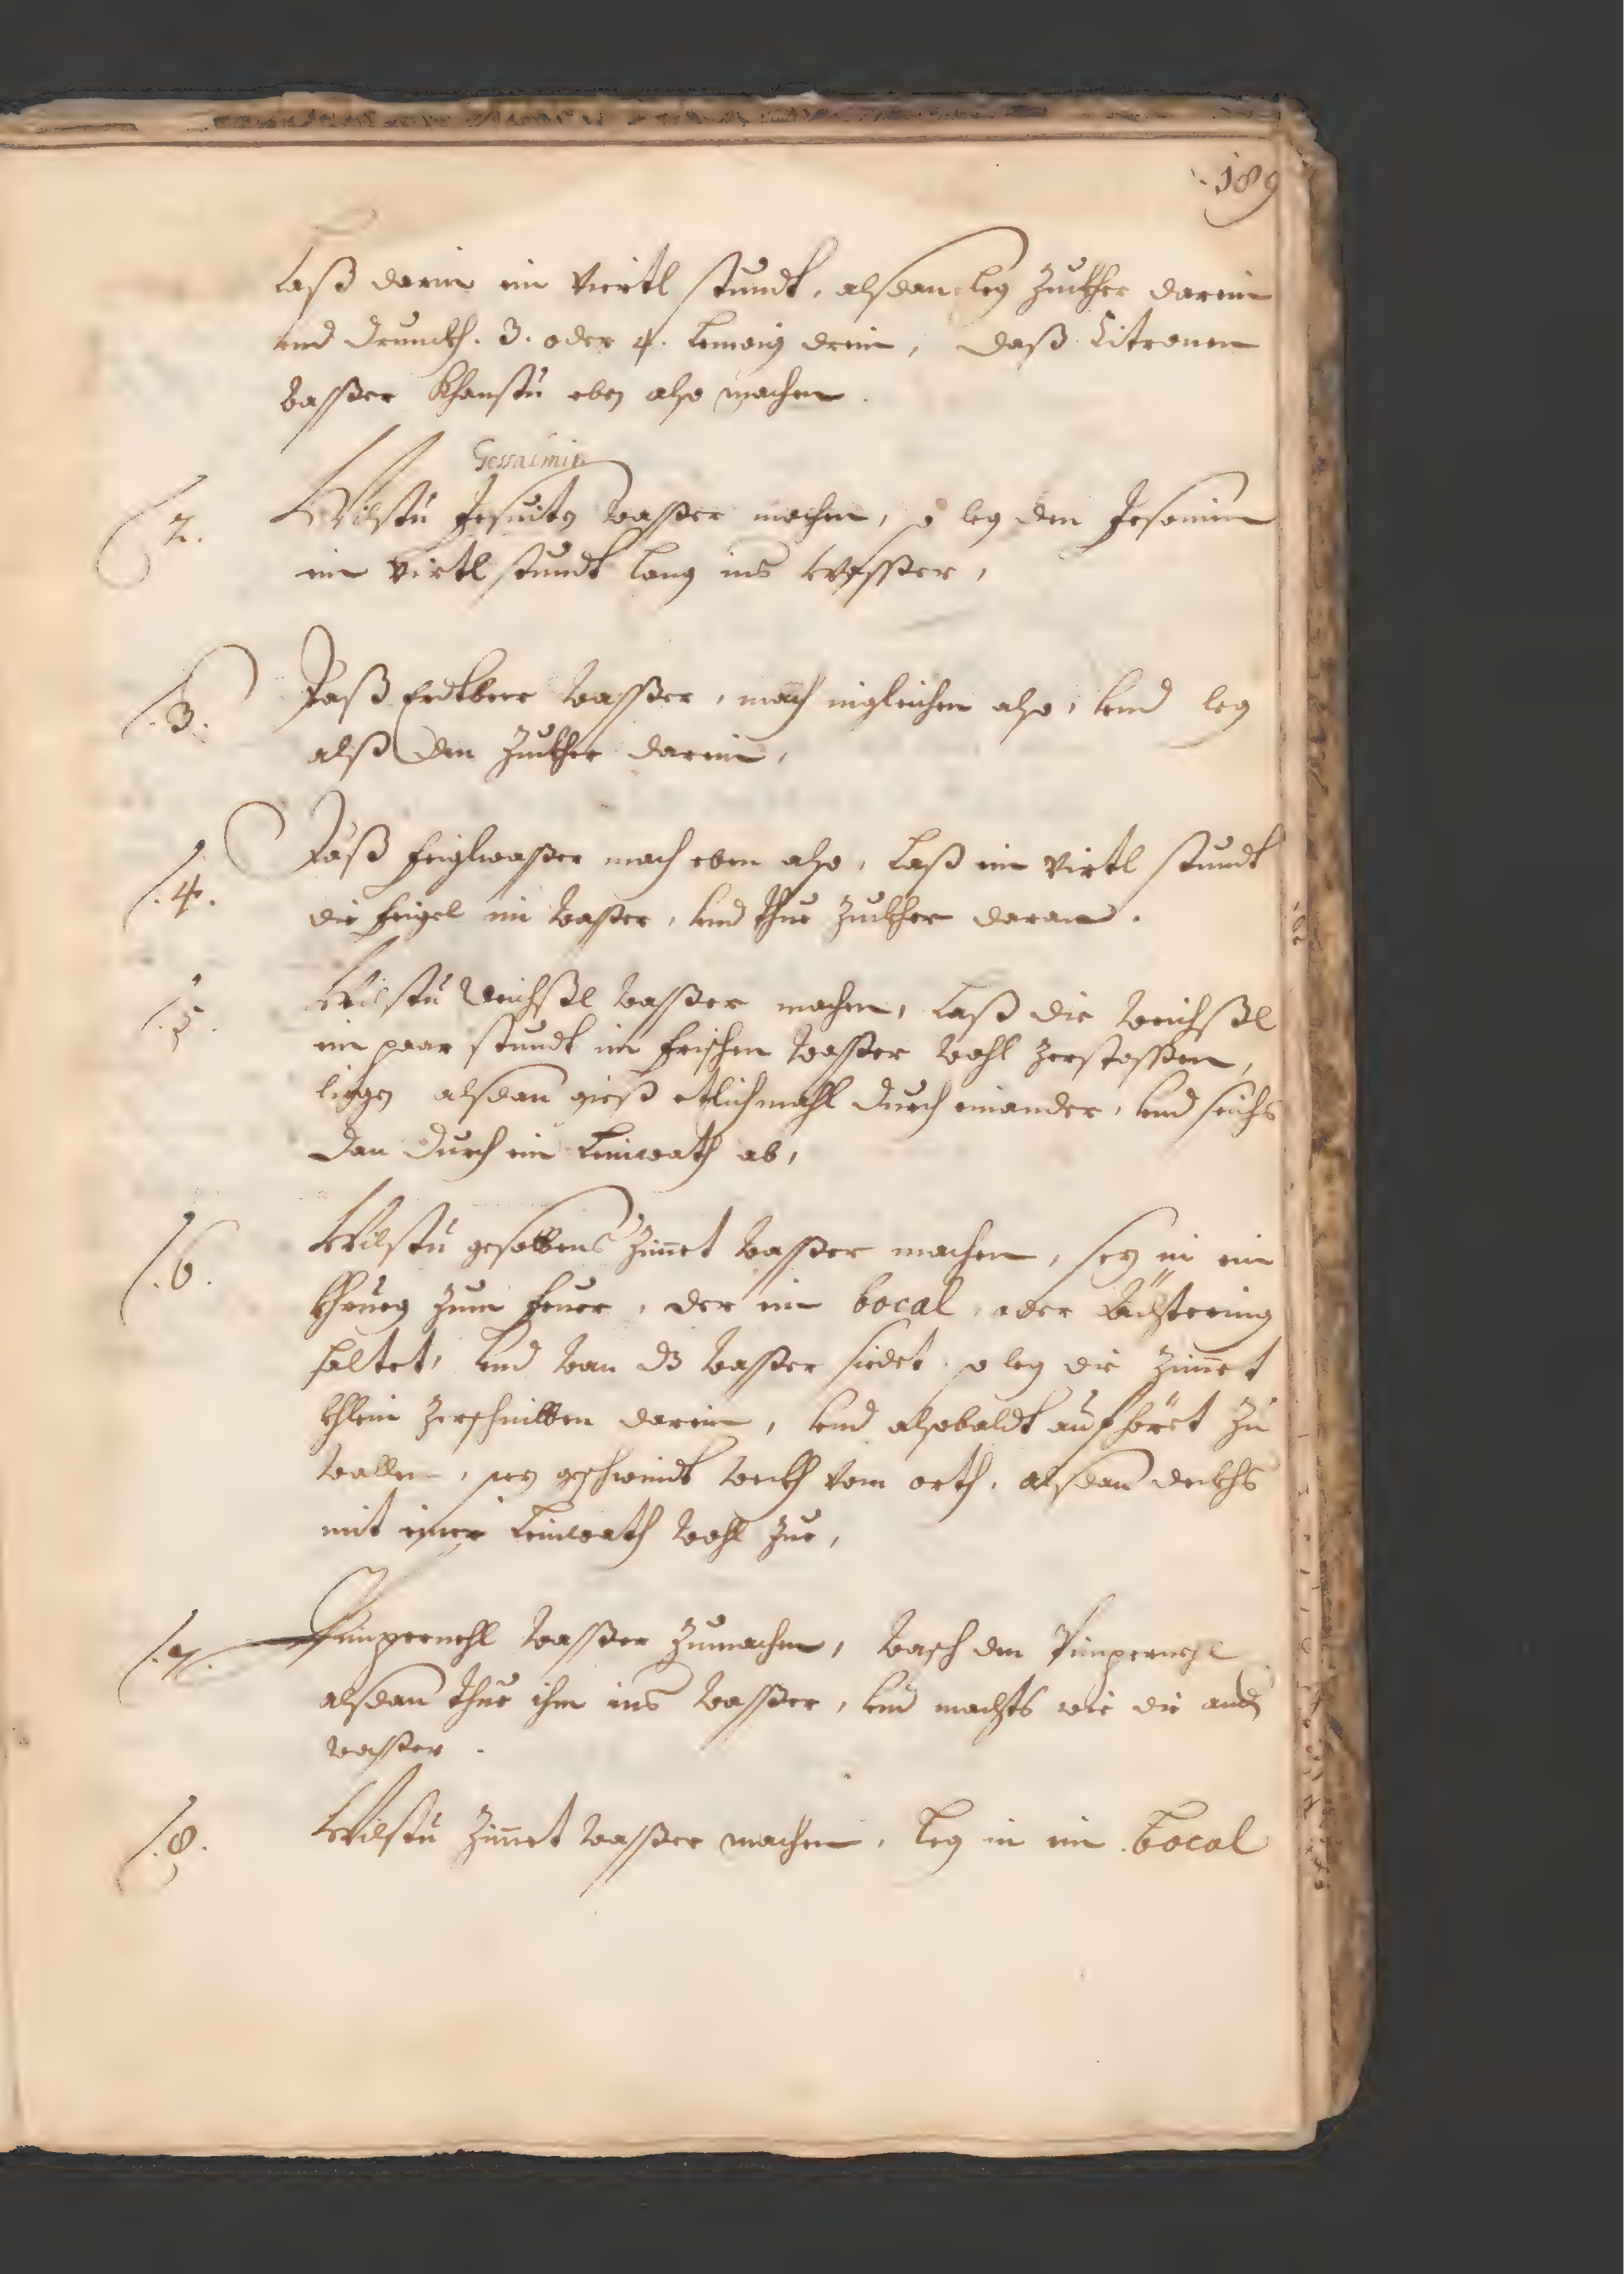 189
Laß darin ein Viertl stundt, alsdan leg Zuckher darein
und druckh. 3. oder 4. Lemoni drein, daß Citronen
wasser khanstu eben also machen.
Gessaimin
2. Wilstu Jesuits wasser machen, so leg den Jesamin
ein virtl stundt lang ins wasser,
.3. Daß Erdtbeer wasser, mach ingleichen also, und leg
alß den Zuckher darein,
.4. Daß feiglwasser mach eben also, Laß ein virtl stundt
die feigel im wasser, und thue Zuckher daran.
.5. Wilstu Weichßl wasser machen, Laß die weichßl
ein paar stundt im frischen wasser wohl zerstossen,
ligen alsdan gieß etlichmahl durch einander, und seichs
dan durch ein Leinwath ab,
.6. Wilstu gesottens Zimet wasser machen, sez in ein
khrueg zum feuer, der ein bocal, oder
haltet, und wan dz wasser siedet so leg die Zimet
khlein zerschnitten darein, und alsobaldt aufhöret zu
wallen, sez geschwindt weckh vom orth, alsdan deckhs
mit einer Leinwath wohl zue,
.7. Pimpernehl wasser zumachen, wasch den Pimpernehl
alsdan thue ihn ins wasser, und machts wie die and
wasser.
.8. Wilstu Zimet wasser machen, Leg in ein bocal